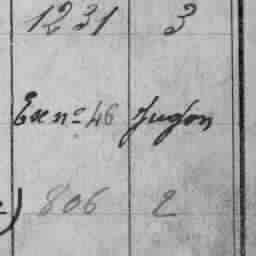 1231 3
Ex nº 46 Jugon
806 2